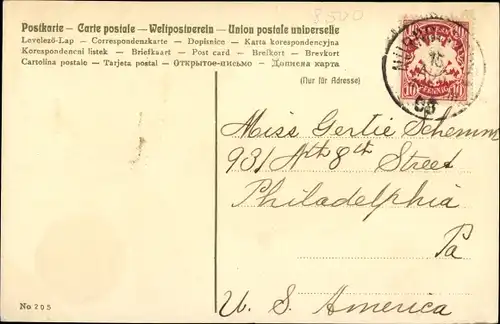 8500
Postkarte — Carte postale — Weltpostverein — Union postale universelle
Levelező-Lap — Correspondenzkarte — Dopisnice — Karta korespondencyjna
Korespondencni listek — Briefkaart — Post card — Brefkort — Brevkort
Cartolina postale — Tarjeta postal — Открытое-письмо — Дописна карта
(Nur für Adresse)
10 PFENNIG 10
Miss Gertie Schemm
931 Nth 8th Street
Philadelphia
Pa
U. S. America
No 205